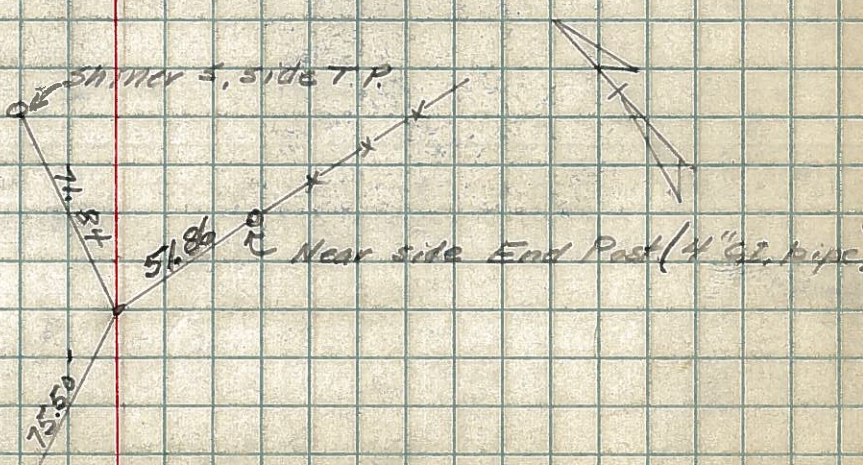 Shiner S. side T.P.
71.84
51.86
Near side End Post (4" G.I. pipe
75.50